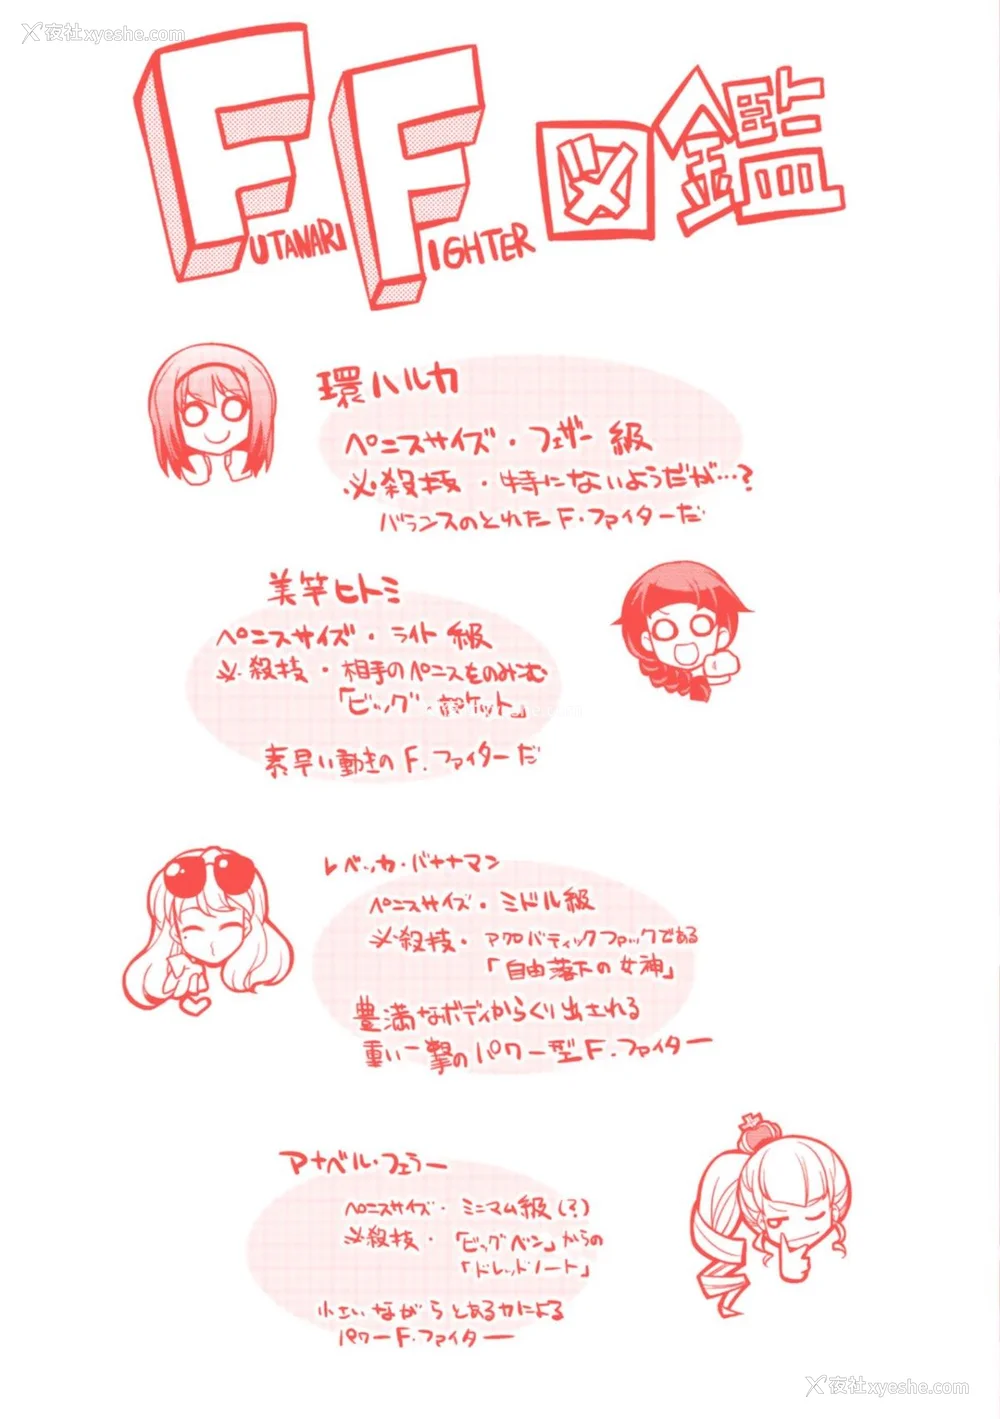 夜社xyeshe.com
FF図鑑
FUTANARI FIGHTER
環ハルカ
ペニスサイズ・フェザー級
必殺技・特にないようだが…?
バランスのとれたF.ファイターだ
美竿ヒトミ
ペニスサイズ・ライト級
必殺技・相手のペニスをのみこむ
「ビッグ・ポケット」
素早い動きのF.ファイターだ
レベッカ・バナナマン
ペニスサイズ・ミドル級
必殺技・アクロバティックファックである
「自由落下の女神」
豊満なボディからくり出される
重い一撃のパワー型F.ファイター
アナベル・フェラー
ペニスサイズ・ミニマム級(?)
必殺技・「ビッグベン」からの
「ドレッドノート」
小さいながらとある力による
パワーF.ファイター
夜社xyeshe.com